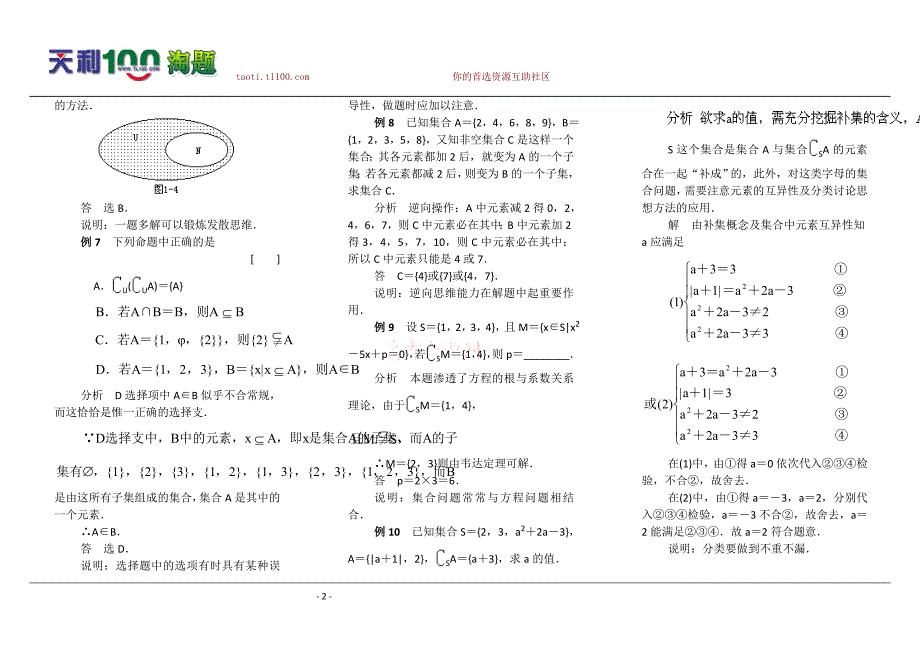 天利100淘题
WWW.TL100.COM
taoti.tl100.com
你的首选资源互助社区
的方法．
U
N
图1-4
答 选 B．
说明：一题多解可以锻炼发散思维．
例 7 下列命题中正确的是
[ ]
A．∁U(∁UA)＝{A}
B．若A∩B＝B，则A⊆B
C．若A＝{1，φ，{2}}，则{2}⫋A
D．若A＝{1，2，3}，B＝{x|x⊆A}，则A∈B
分析 D 选择项中 A∈B 似乎不合常规，
而这恰恰是惟一正确的选择支．
∵D选择支中，B中的元素，x⊆A，即x是集合A的子集，而A的子
集有∅，{1}，{2}，{3}，{1，2}，{1，3}，{2，3}，{1，2，3}，而B
是由这所有子集组成的集合，集合 A 是其中的
一个元素．
∴A∈B．
答 选 D．
说明：选择题中的选项有时具有某种误
导性，做题时应加以注意．
例 8 已知集合 A＝{2，4，6，8，9}，B＝
{1，2，3，5，8}，又知非空集合 C 是这样一个
集合：其各元素都加 2 后，就变为 A 的一个子
集；若各元素都减 2 后，则变为 B 的一个子集，
求集合 C．
分析 逆向操作：A 中元素减 2 得 0，2，
4，6，7，则 C 中元素必在其中；B 中元素加 2
得 3，4，5，7，10，则 C 中元素必在其中；
所以 C 中元素只能是 4 或 7．
答 C＝{4}或{7}或{4，7}．
说明：逆向思维能力在解题中起重要作
用．
例 9 设 S＝{1，2，3，4}，且 M＝{x∈S|x²
－5x＋p＝0}，若∁SM＝{1，4}，则 p＝________．
分析 本题渗透了方程的根与系数关系
理论，由于∁SM＝{1，4}，
且M⫋S，
∴M＝{2，3}则由韦达定理可解．
答 p＝2×3＝6．
说明：集合问题常常与方程问题相结
合．
例 10 已知集合 S＝{2，3，a²＋2a－3}，
A＝{|a＋1|，2}，∁SA＝{a＋3}，求 a 的值．
分析 欲求a的值，需充分挖掘补集的含义，A
S 这个集合是集合 A 与集合∁SA 的元素
合在一起“补成”的，此外，对这类字母的集
合问题，需要注意元素的互异性及分类讨论思
想方法的应用．
解 由补集概念及集合中元素互异性知
a 应满足
a＋3＝3 ①
|a＋1|＝a²＋2a－3 ②
(1)
a²＋2a－3≠2 ③
a²＋2a－3≠3 ④
a＋3＝a²＋2a－3 ①
|a＋1|＝3 ②
或(2)
a²＋2a－3≠2 ③
a²＋2a－3≠3 ④
在(1)中，由①得 a＝0 依次代入②③④检
验，不合②，故舍去．
在(2)中，由①得 a＝－3，a＝2，分别代
入②③④检验，a＝－3 不合②，故舍去，a＝
2 能满足②③④．故 a＝2 符合题意．
说明：分类要做到不重不漏．
- 2 -